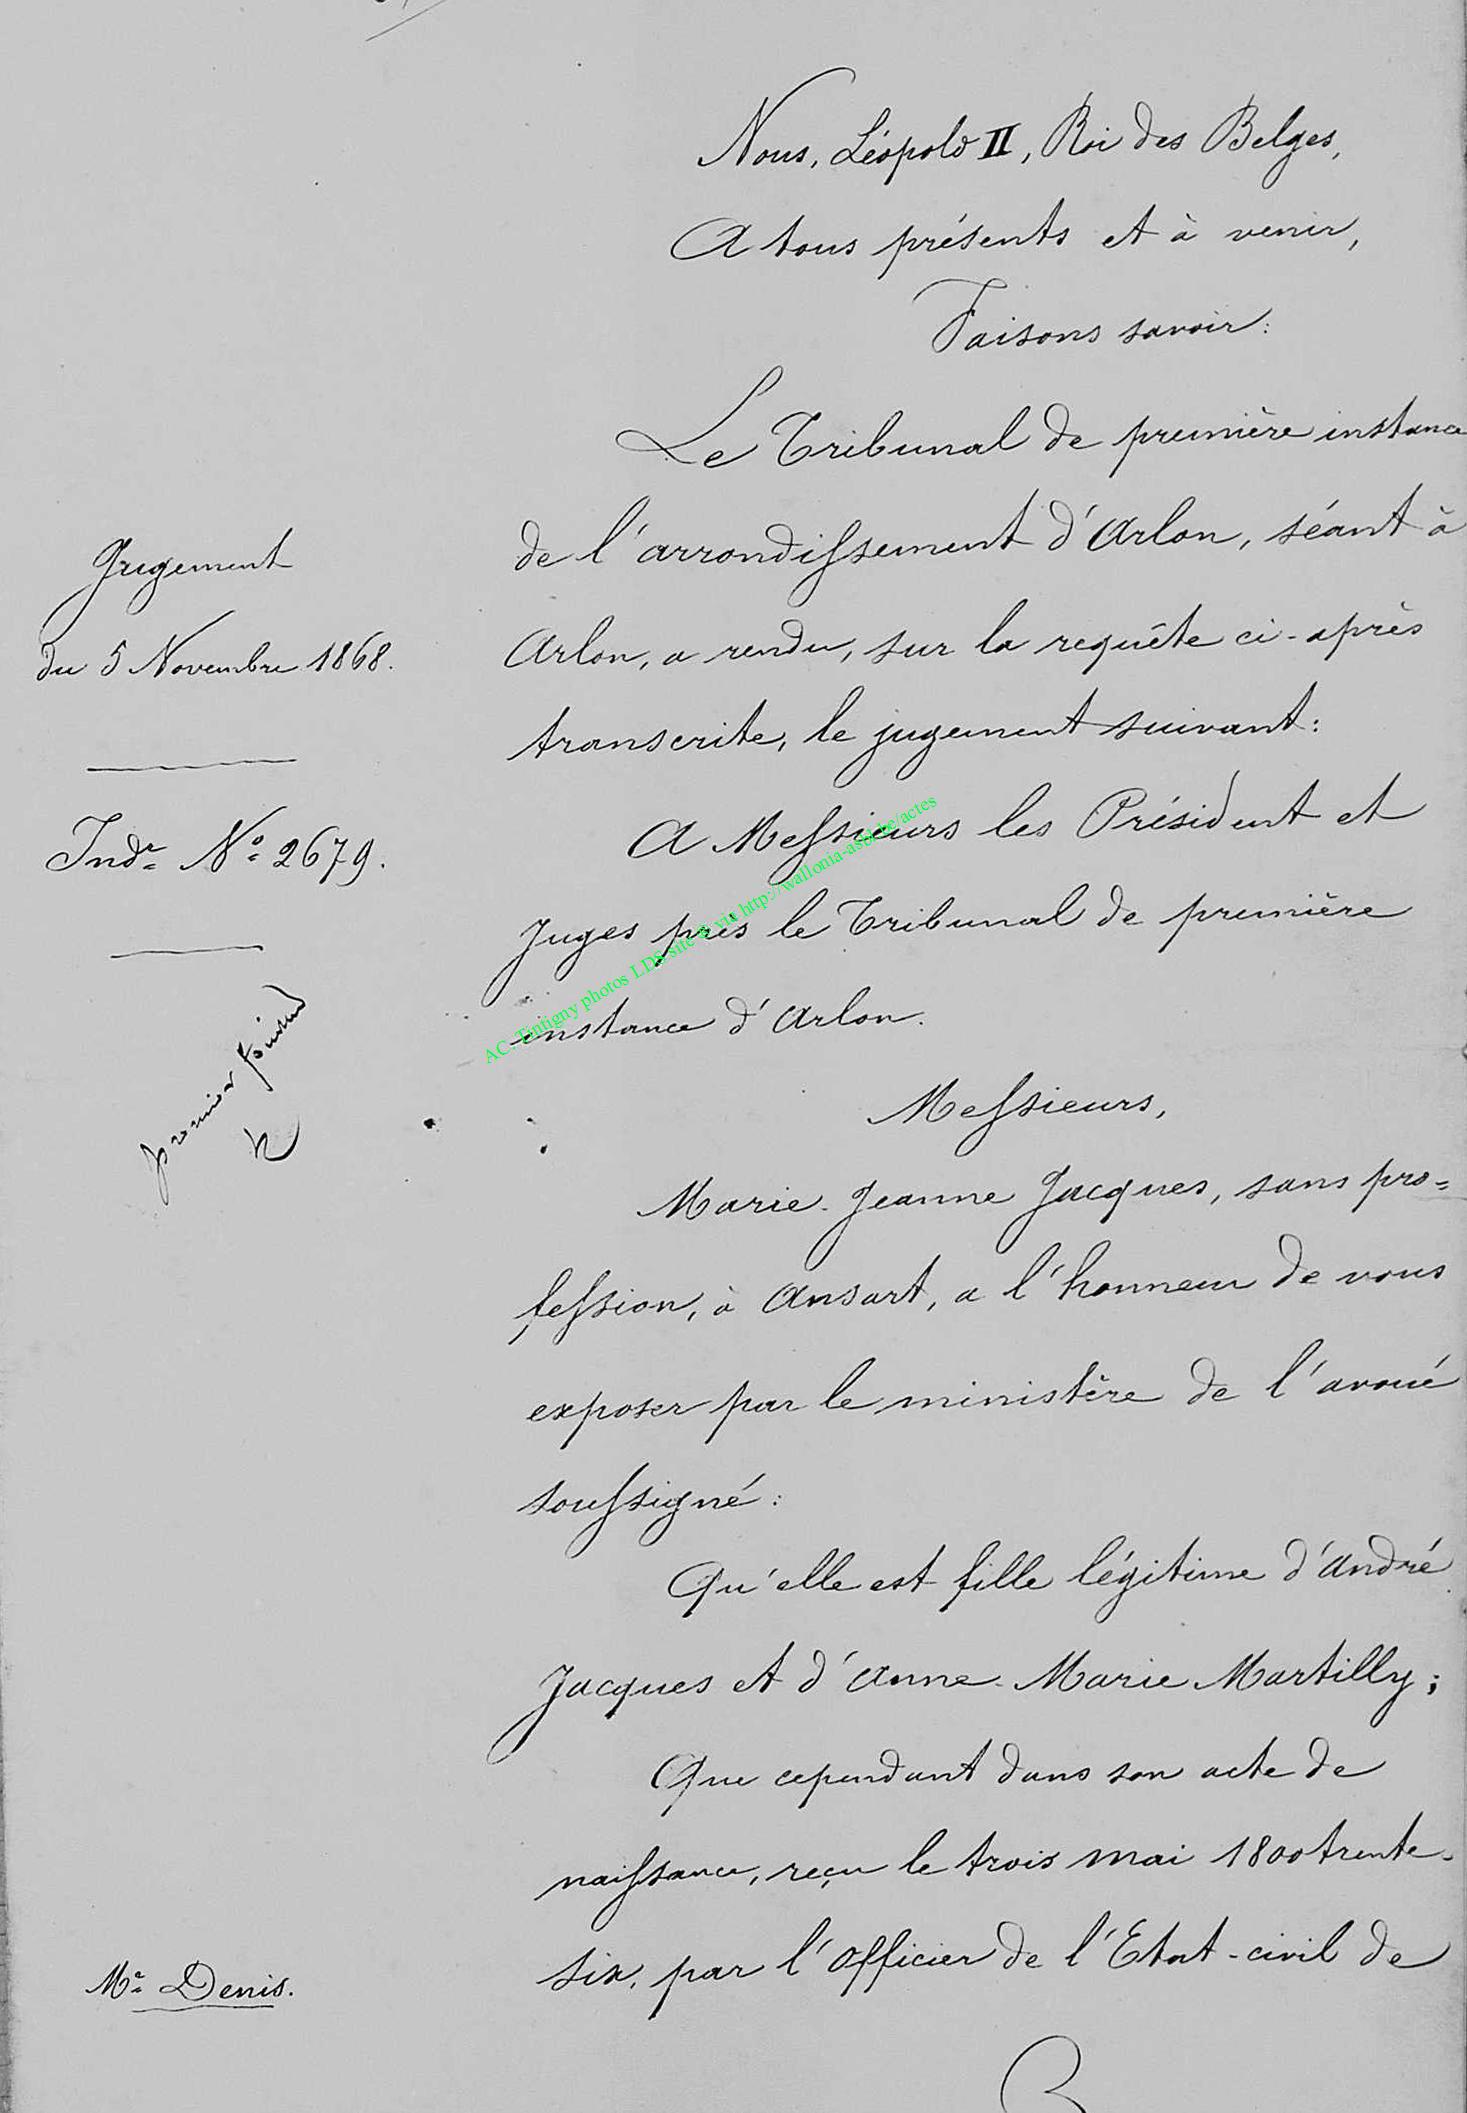 Nous, Léopold II, Roi des Belges,
A tous présents et à venir,
Faisons savoir:
Le Tribunal de première instance
de l'arrondissement d'Arlon, séant à
Arlon, a rendu, sur la requête ci-après
transcrite, le jugement suivant:
A Messieurs les Président et
Juges près le Tribunal de première
instance d'Arlon.
Messieurs,
Marie-Jeanne Jacques, sans pro=
fession, à Ansart, a l'honneur de vous
exposer par le ministère de l'avoué
soussigné:
Qu'elle est fille légitime d'André
Jacques et d'Anne-Marie Martilly;
Que cependant dans son acte de
naissance, reçu le trois mai 1800 trente-
six, par l'Officier de l'Etat-civil de
Jugement
du 5 Novembre 1868.
Indre No 2679.
premier
Me Denis.
AC. Tintigny photos LDS site & via http://wallonia-asbl.be/actes